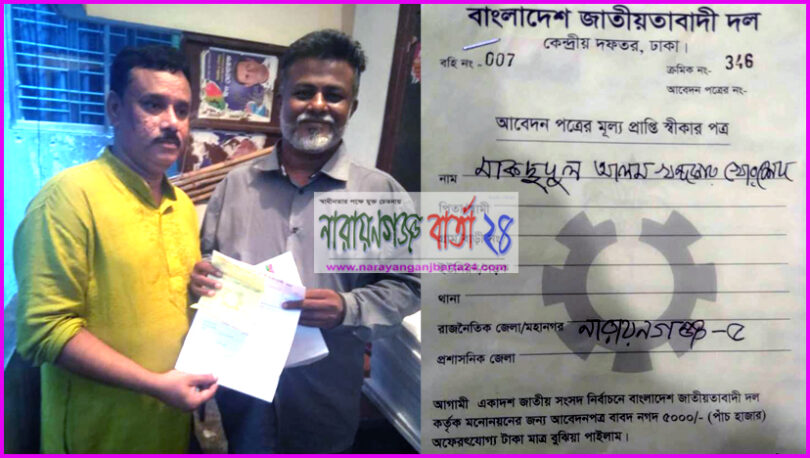 স্বাধীনতার পক্ষে মুক্ত চেতনায়
নারায়নগঞ্জ বার্তা ২৪
www.narayanganjbarta24.com
বাংলাদেশ জাতীয়তাবাদী দল
কেন্দ্রীয় দফতর, ঢাকা।
বহি নং- 007
ক্রমিক নং- 346
আবেদন পত্রের নং-
আবেদন পত্রের মূল্য প্রাপ্তি স্বীকার পত্র
নাম মাকছুদুল আলম খন্দকার খোরশেদ
থানা
রাজনৈতিক জেলা/মহানগর নারায়নগঞ্জ-৫
প্রশাসনিক জেলা
আগামী একাদশ জাতীয় সংসদ নির্বাচনে বাংলাদেশ জাতীয়তাবাদী দল
কর্তৃক মনোনয়নের জন্য আবেদনপত্র বাবদ নগদ ৫০০০/- (পাঁচ হাজার)
অফেরৎযোগ্য টাকা মাত্র বুঝিয়া পাইলাম।